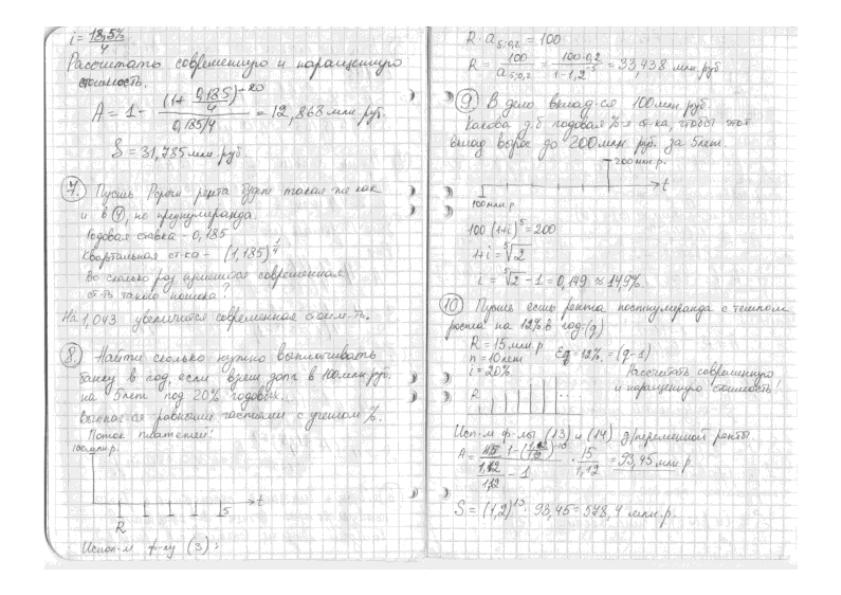 i = 18,5% / 4
Рассчитать современную и наращенную
стоимость.
A = 1 - (1 + 0,185/4)^-20 / 0,185/4 = 12,868 млн руб.
S = 31,785 млн руб
7. Пусть рента будет такая же как
и в , но пренумерандо.
Годовая ставка - 0,185
Квартальная ст-ка - (1,185)^1/4
Во сколько раз современная
ст-ть такого потока?
На 1,043 увеличится современная стоим-ть.
8 Найти сколько нужно выплачивать
банку в год, если взят долг в 100 млн руб.
на 5 лет под 20% годовых.
равными частями с учетом %.
Поток платежей:
100 млн р.
t
R
5
Испол-м ф-лу (3):
R · a 5;0,2 = 100
R = 100 / a 5;0,2 = 100·0,2 / 1-1,2^-5 = 33,438 млн. руб
9 В дело вклад-ся 100 млн руб.
Какова д.б годовая %-я ст-ка, чтобы этот
вклад вырос до 200 млн. руб. за 5 лет.
200 млн.р.
t
100 млн р
100 (1+i)^5 = 200
1+i = ⁵√2
i = ⁵√2 - 1 = 0,149 ≈ 14,9%
10 Пусть есть рента постнумерандо с темпом
роста на 12% в год (q)
R = 15 млн.р
n = 10 лет = 12% = (q-1)
i = 20%
Рассчитать современную
и наращенную стоимость!
R
Исп-м ф-лы (13) и (14) д/переменной ренты.
· 15 / 1,12 = 93,45 млн р
S = (1,2)^10 · 93,45 = 578,4 млн.р.